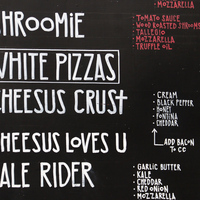 MOZZARELLA
SHROOMIE
TOMATO SAUCE
WOOD ROASTED SHROOMS
TALLEGIO
MOZZARELLA
TRUFFLE OIL
WHITE PIZZAS
CHEESUS CRUST
CREAM
BLACK PEPPER
HONEY
FONTINA
CHEDDAR
ADD BACON
TO CC
CHEESUS LOVES U
KALE RIDER
GARLIC BUTTER
KALE
CHEDDAR
RED ONION
MOZZARELLA